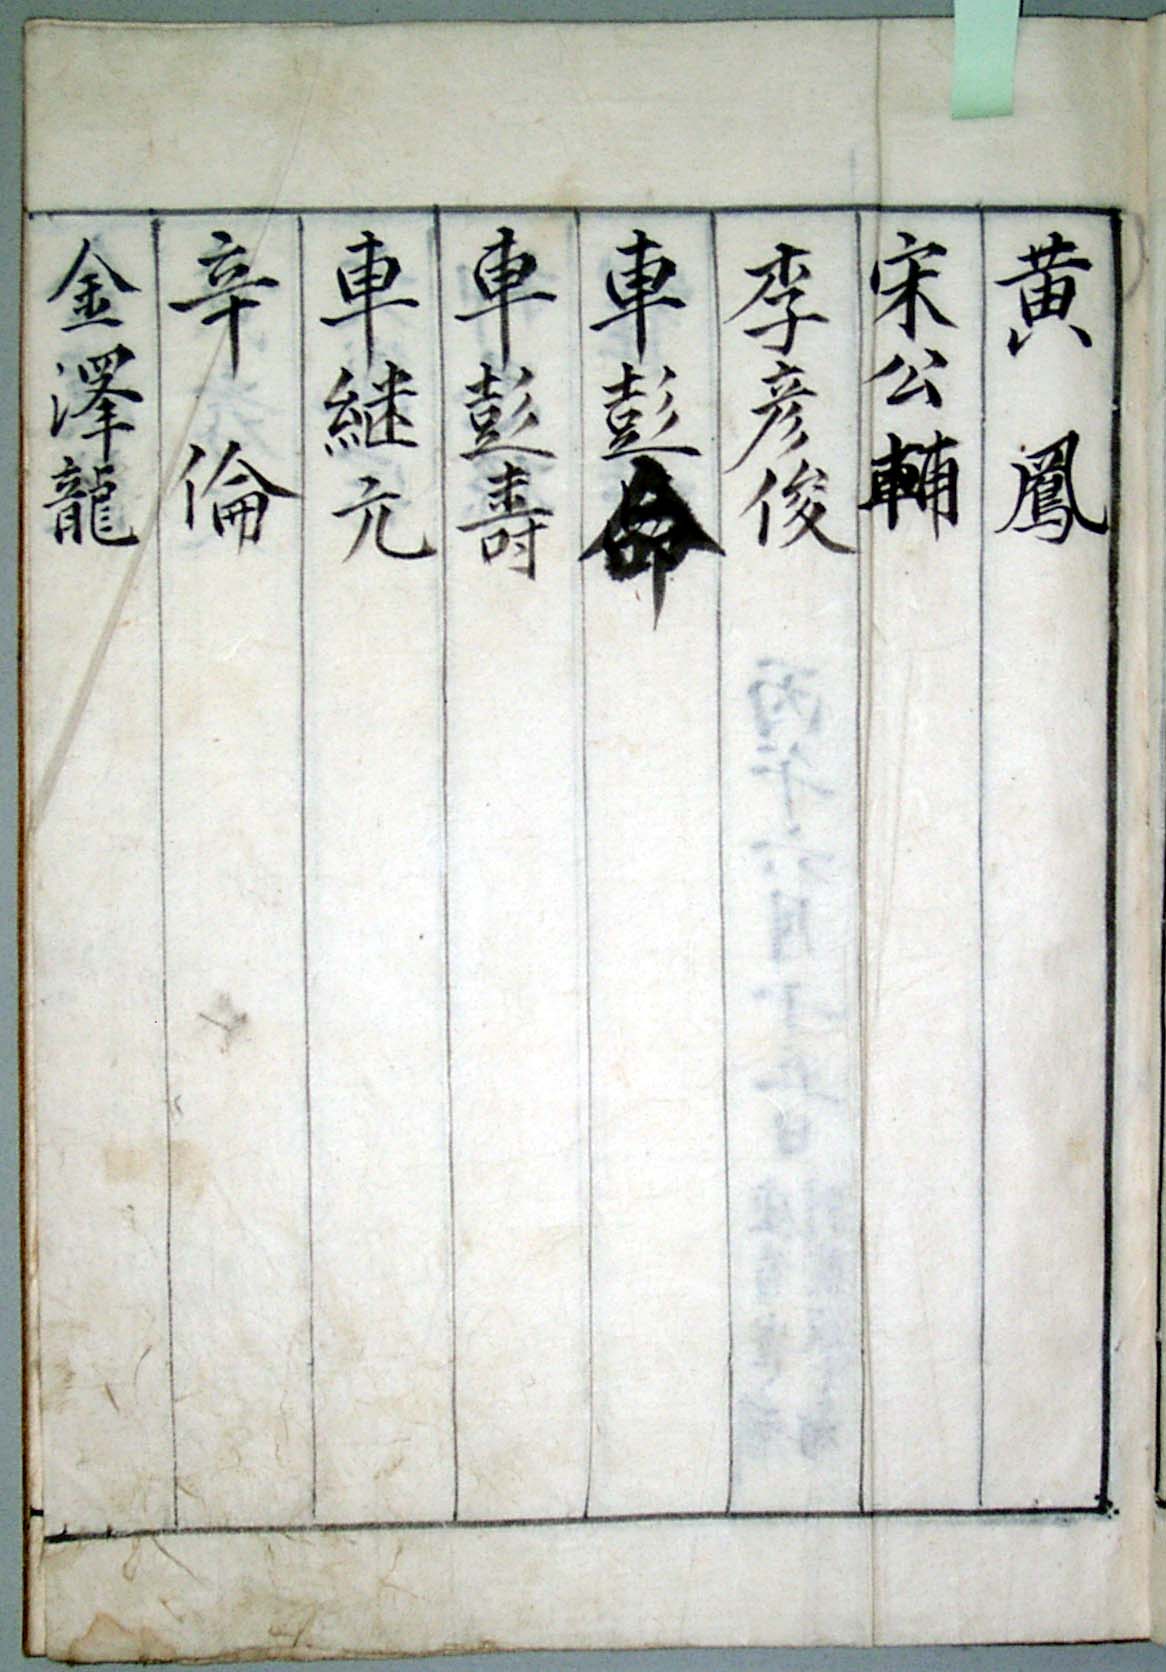 黄鳳
宋公輔
李彦俊
車彭命
車彭壽
車継元
辛倫
金澤龍